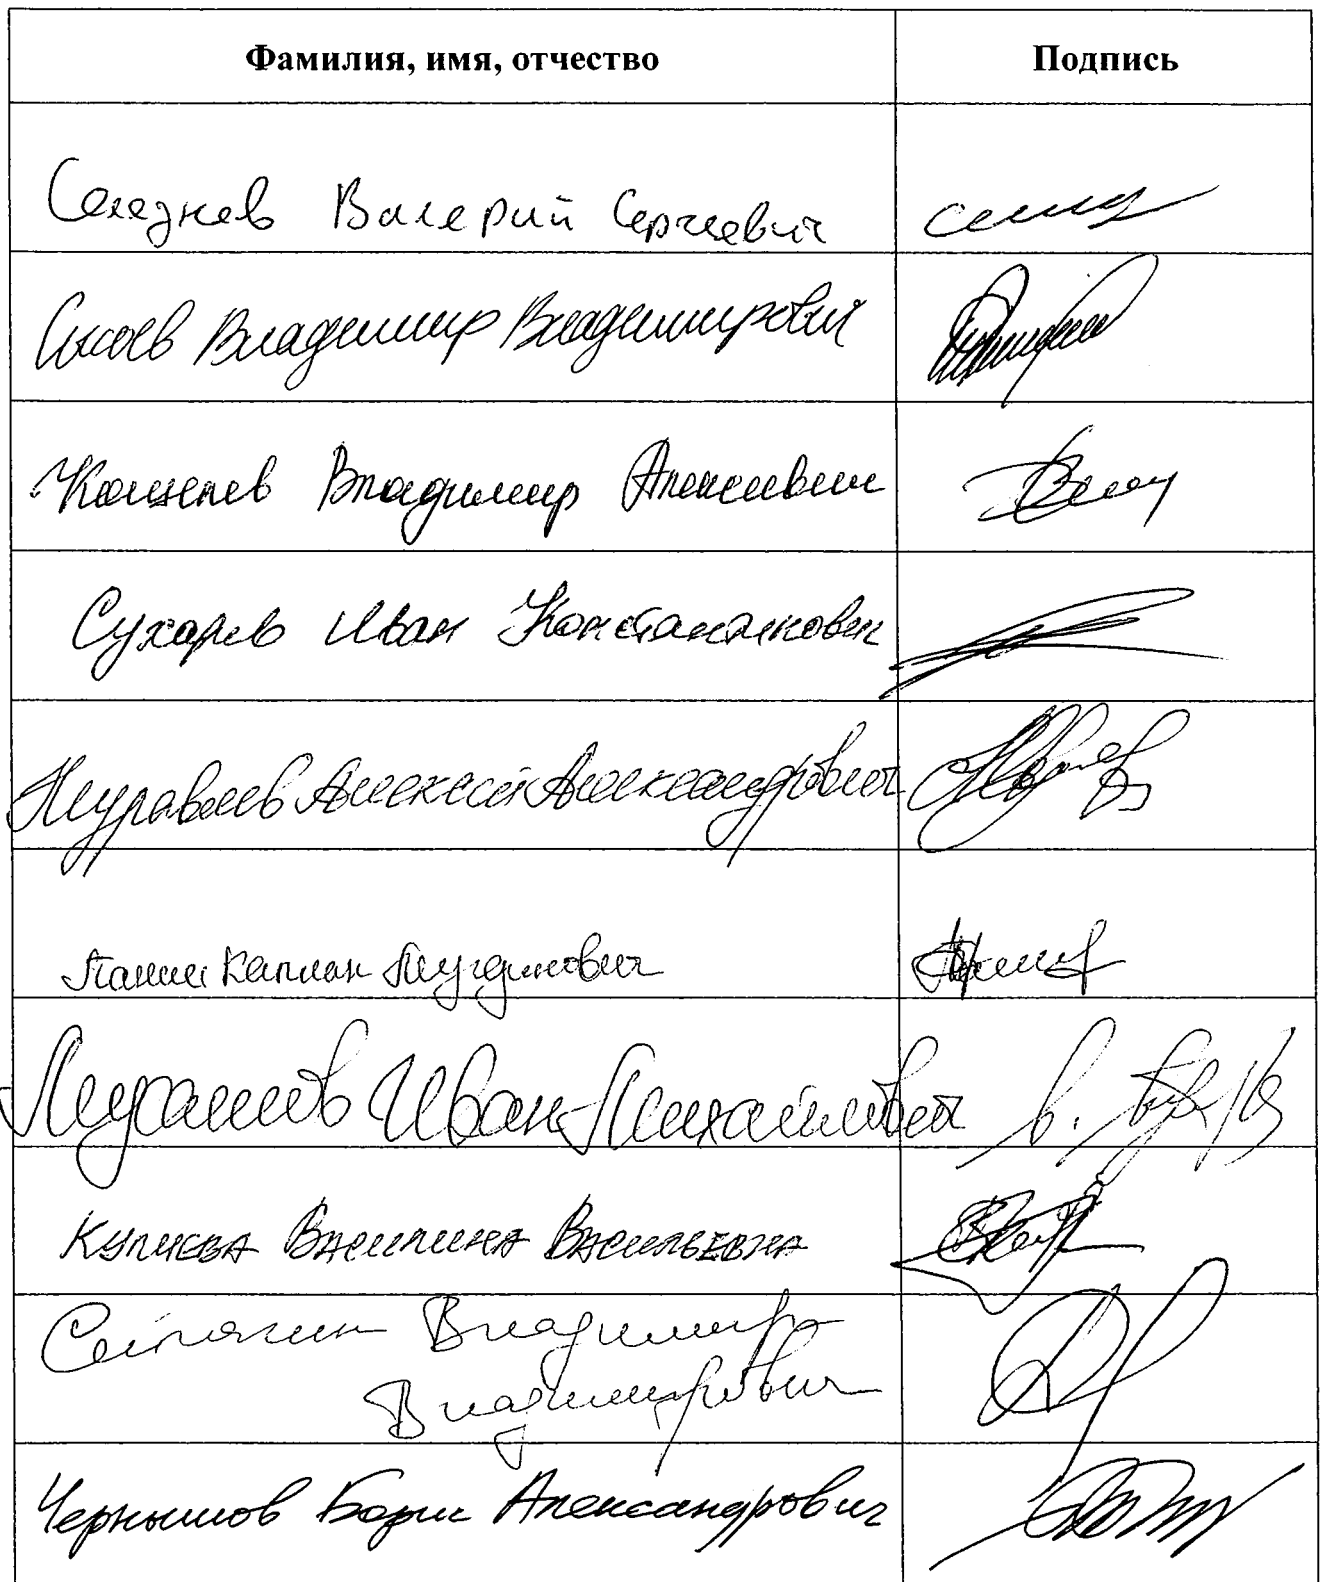 Фамилия, имя, отчество Подпись
Селезнев Валерий Сергеевич
Сысоев Владимир Владимирович
Кошелев Владимир Алексеевич
Сухарев Иван Константинович
Журавлев Алексей Александрович
Панеш Каплан Мугдинович
Мурашов Иван Михайлович
Кулиева Василина Васильевна
Сипягин Владимир
Владимирович
Чернышов Борис Александрович